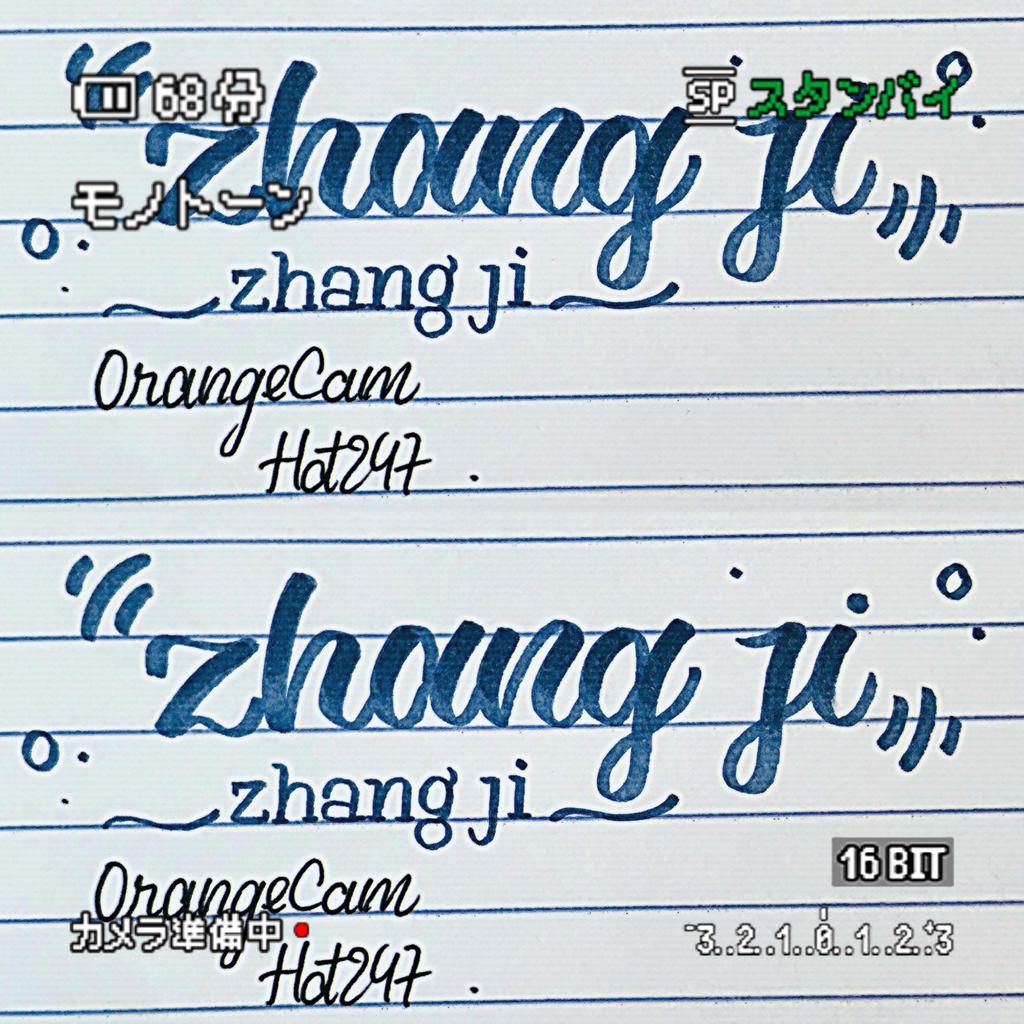 68分
SP スタンバイ
zhang ji
モノトーン
zhang ji
OrangeCam
Hot247
zhang ji
zhang ji
16 BIT
OrangeCam
カメラ準備中
-3..2..1..0..1..2..+3
Hot247